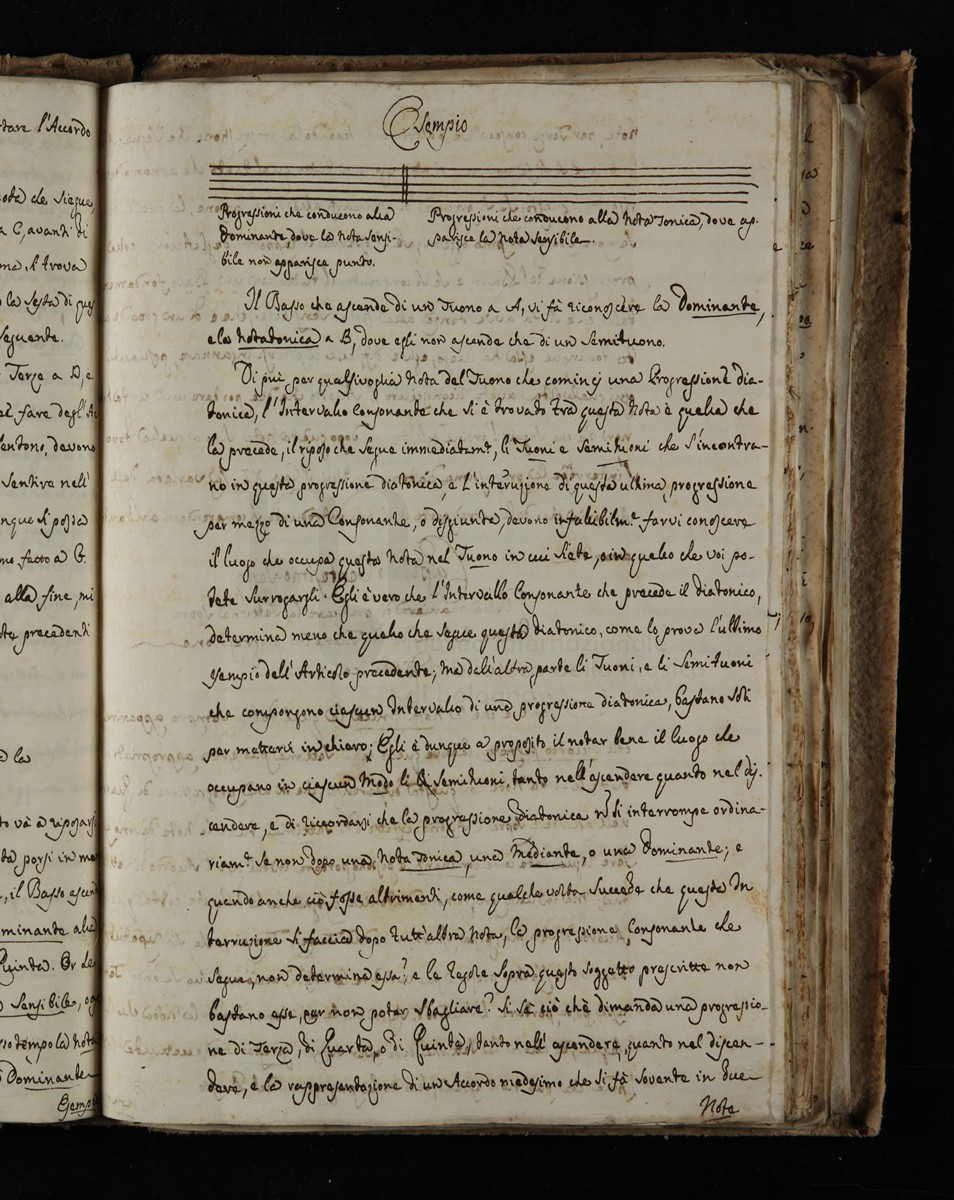 tare l'Accordo
ota che siegue,
a C, avanti di
ma, si trova
la sesta di ques
seguente.
Terza a D, e
fare degl'Ac
entono, devono
sentire nell'
nque si possa
mo fatto a G.
alla fine, mi
te precedenti
la
to và a riposars
porsi in me
, il Basso ascen
minante alla
Quinta. Or le
Sensibile, og
so tempo la nota
Dominante
Esemp
Esempio
Progressioni che conducono alla
Dominante, dove la nota sensi-
bile non apparisce punto.
Progressioni che conducono alla nota Tonica, dove ap-
parisce la nota sensibile.
Il Basso che ascende di un Tuono a A, vi fà riconoscere la Dominante,
e la notatonica a B, dove egli non ascende che di un Semituono.
Di più per qualsivoglia Nota del Tuono che cominci una Progressione dia-
tonica, l'Intervallo Consonante che si è trovato trà questa Nota e quella che
la precede, il riposo che segue immediatamt., li Tuoni e Semituoni che s'incontra-
no in questa progressione diatonica, e l'interuzione di questa ultima progressione
per mezzo di una Consonante, o disgiunta, devono infalibilme. farvi conoscere
il luogo che occupa questa Nota nel Tuono in cui siete, o in quello che voi po-
tete surrogargli. Egli è vero che l'Intervallo Consonante che precede il diatonico,
determina meno che quello che segue questo diatonico, come lo prova l'ultimo
esempio dell'Articolo precedente; ma dall'altra parte li Tuoni, e li Semituoni
che compongono ciascun Intervallo di una progressione diatonica, bastano soli
per mettervi in chiaro; Egli è dunque a proposito il notar bene il luogo che
occupano in ciascun Modo li Semituoni, tanto nell'ascendere quanto nel dis-
cendere, e di ricordarsi che la progressione diatonica nō si interrompe ordina-
riamt. se non dopo una Nota Tonica, una Mediante, o una Dominante; e
quando anche ciò fosse altrimenti, come qualche volta succede che questa In
terruzione si faccia dopo tutt'altra Nota, la progressione Consonante che
segue, non determina essa? e le Regole sopra questo soggetto prescritte non
bastano esse, per non poter sbagliare? Si sà ciò chè dimanda una progressio-
ne di Terza, di Quarta, o di Quinta, tanto nell'ascendere, quanto nel discen-
dere, e la rappresentazione di un Accordo medesimo che si fà sovente in due
Note